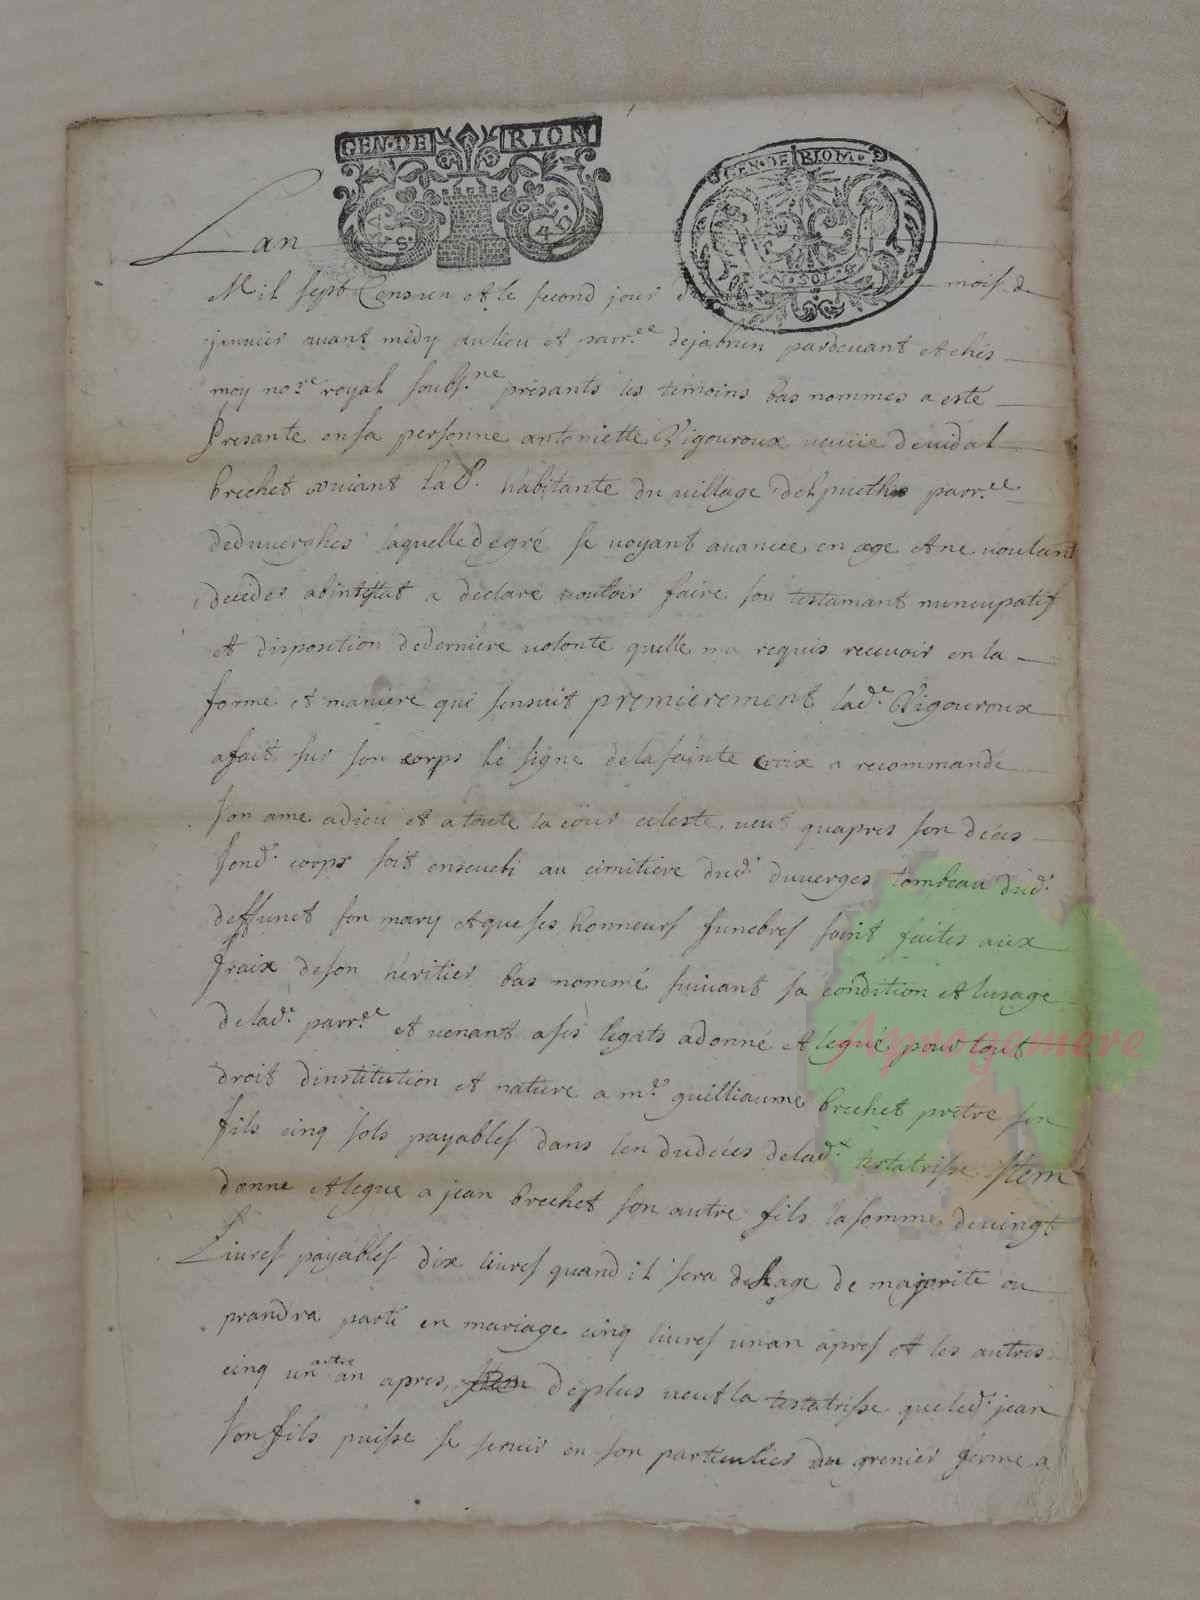 GEN·DE RION
S. 4 D.
GEN·DE RIOM·
SOL
Lan
Mil sept Censun et le second jour du mois de
janvier avant midy au lieu et parr.ee dejabrun pardevant et chés
moy no.re royal soubs.ne présants les témoins bas nommes a esté
Presante en sa personne antoniette Vigouroux veuüe de vidal
brechet vivant la d. habitante du village delpuech parr.ee
deduverghes laquelle de gré se voyant avancée en age et ne voulant
déceder abintestat a declaré vouloir faire son testamant nuncupatif
et disposition de derniere volonté quelle ma requis recevoir en la
forme et maniere qui sensuit premierement lad.e Vigouroux
a fait sur son corps le signe de la sainte croix a recommandé
son ame a dieu et a toute la cour celeste, veut quapres son déces
sond. corps soit enseveli au cimitiere dud. duverges tombeau dud.
deffunct son mary et que ses honneurs funebres soint faites aux
fraix de son héritier bas nommé suivant sa condition et lusage
de lad.e parr.ee et venant a ses legats a donné et legué pour tout
droit dinstitution et nature a m.re guilliaume brechet prètre son
fils cinq sols payables dans lan dudéces de lad.e testatrisse Item
donne et legue a jean brechet son autre fils la somme de vingt
Livres payables dix livres quand il sera de lage de majorité ou
prandra parti en mariage cinq livres un an apres et les autres
cinq un autre an apres, deplus veut la testatrisse que led. jean
son fils puisse se servir en son particulier du grenier fermé a
Aprogemere